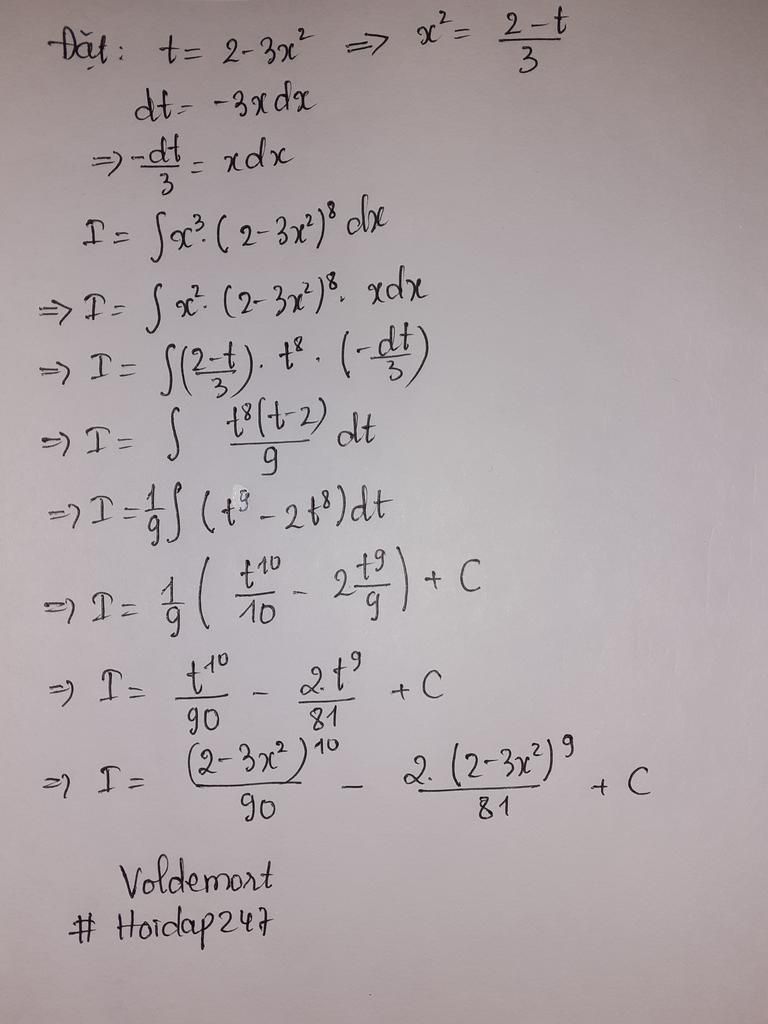 Đặt: t = 2-3x² => x² = (2-t)/3
dt = -3xdx
=> -dt/3 = xdx
I = ∫x³.(2-3x²)⁸ dx
=> I = ∫ x².(2-3x²)⁸. xdx
=> I = ∫((2-t)/3). t⁸. (-dt/3)
=> I = ∫ t⁸(t-2)/9 dt
=> I = 1/9 ∫ (t⁹ - 2t⁸)dt
=> I = 1/9 ( t¹⁰/10 - 2 t⁹/9 ) + C
=> I = t¹⁰/90 - 2.t⁹/81 + C
=> I = (2-3x²)¹⁰/90 - 2.(2-3x²)⁹/81 + C
Voldemort
# Hoidap247